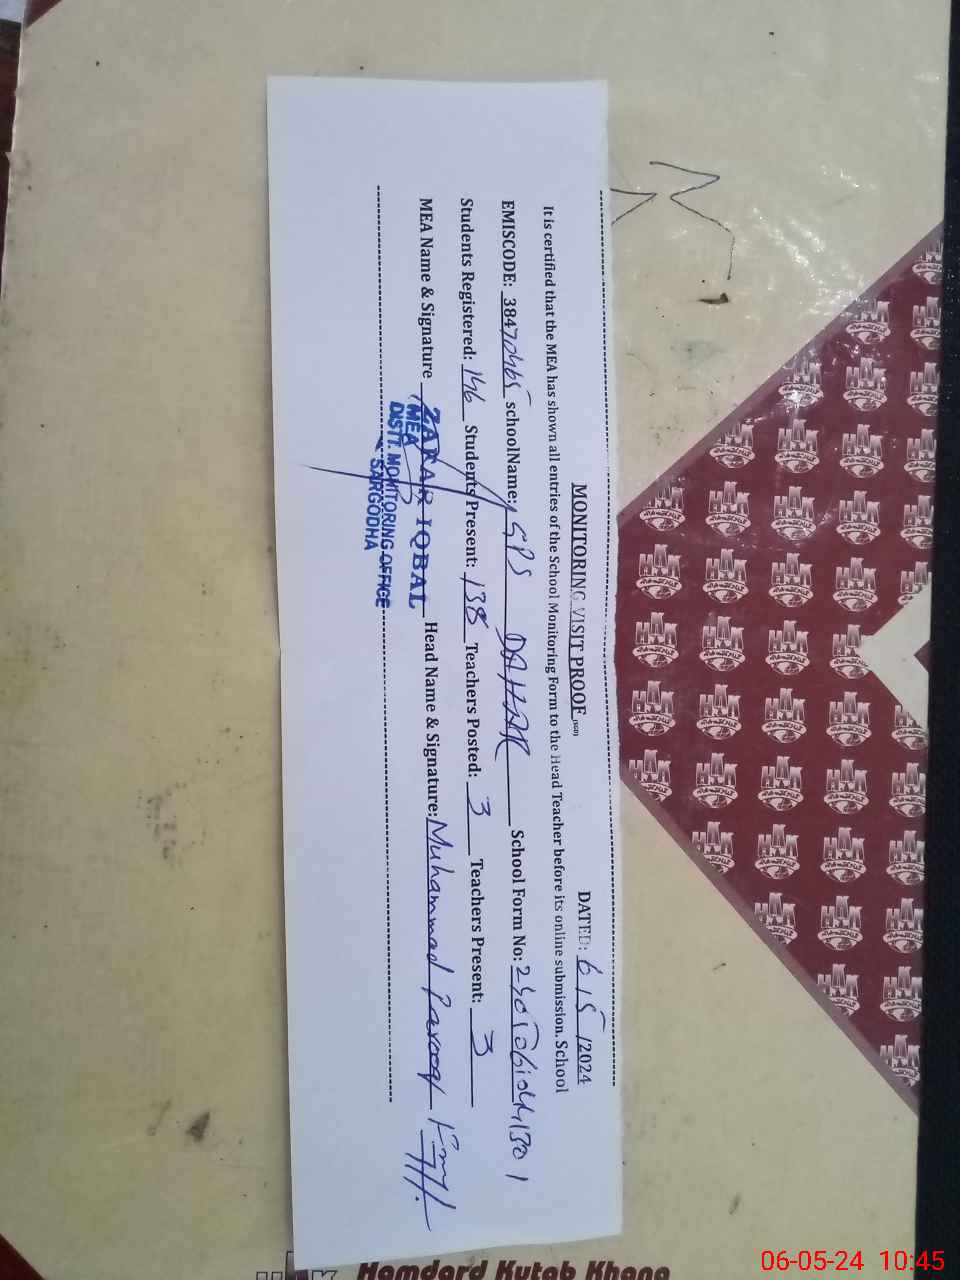 MONITORING VISIT PROOF (SGD) DATED: 6/5/2024
It is certified that the MEA has shown all entries of the School Monitoring Form to the Head Teacher before its online submission. School
EMISCODE: 38470465 schoolName: GPS DAHAR School Form No:
Students Registered: 146 Students Present: 138 Teachers Posted: 3 Teachers Present: 3
MEA Name & Signature ZAFAR IQBAL Head Name & Signature: Muhammad Farooq
MEA
DISTT. MONITORING OFFICE
SARGODHA
Hamdard Kutab Khana
06-05-24 10:45